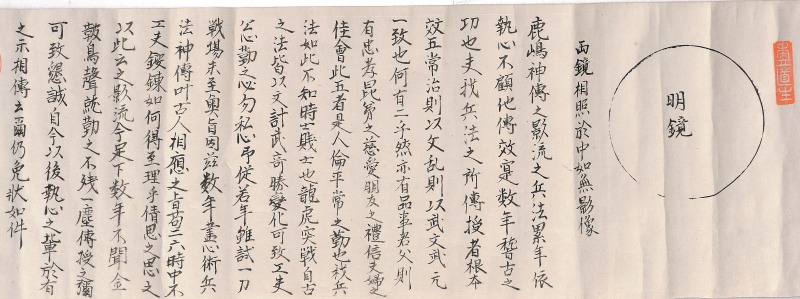 明鏡
両鏡相照於中如無影像
鹿嶋神傳之影流之兵法累年依
執心不顧他傳效寔数年稽古之
功也夫我兵法之所傳授者根本
效五常治則以文乱則以武文武元
一致也何有二乎然亦有品事君父則
有忠孝昆弟之慈愛朋友之禮信夫婦之
佳會此五者是人倫平常之勤也我兵
法如此不知時士賎士也龍虎実戦自古
之法皆以文計武奇勝變化可致工夫
公勤之心勿私心

従若年雖試一刀
戦場未至奥旨因茲数年盡心術兵
法神傳叶古人相應之旨苟二六時中不
工夫鍛錬如何得至理乎倩思之思之
以此云之影流今足下数年不聞金
鼓鳥聲就勤之不残一塵傳授之彌
可致懇誠自今以後執心之輩於有
之示相傳云爾仍免状如件